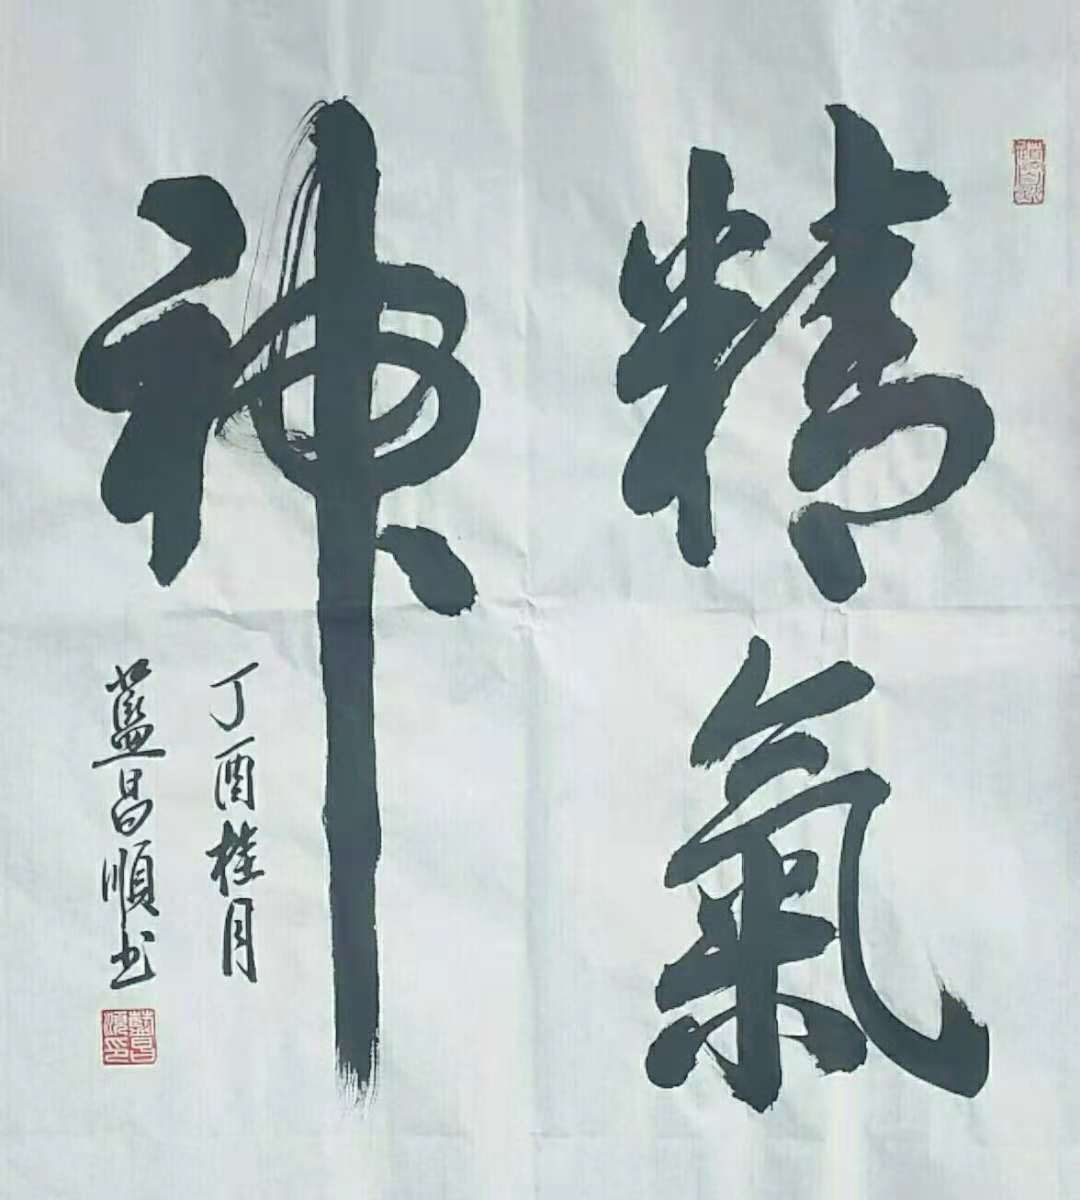 精氣
神
丁酉桂月
藍昌順书